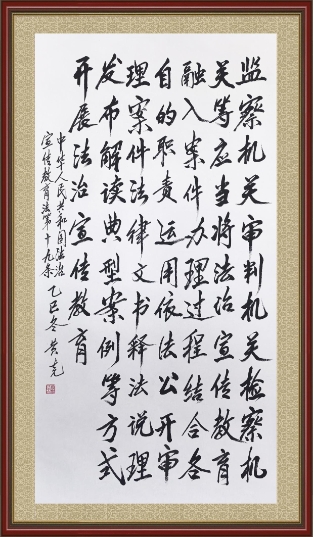 监察机关审判机关检察机
关等应当将法治宣传教育
融入案件办理过程结合各
自的职责运用依法公开审
理案件法律文书释法说理
发布解读典型案例等方式
开展法治宣传教育
中华人民共和国法治
宣传教育法第十九条
乙巳冬